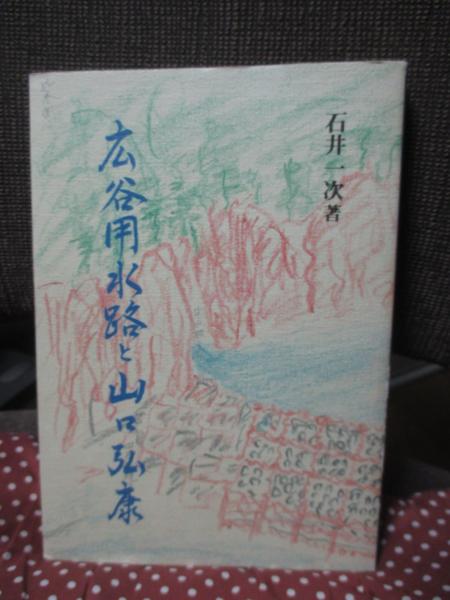 石井一次著
広谷用水路と山口弘康